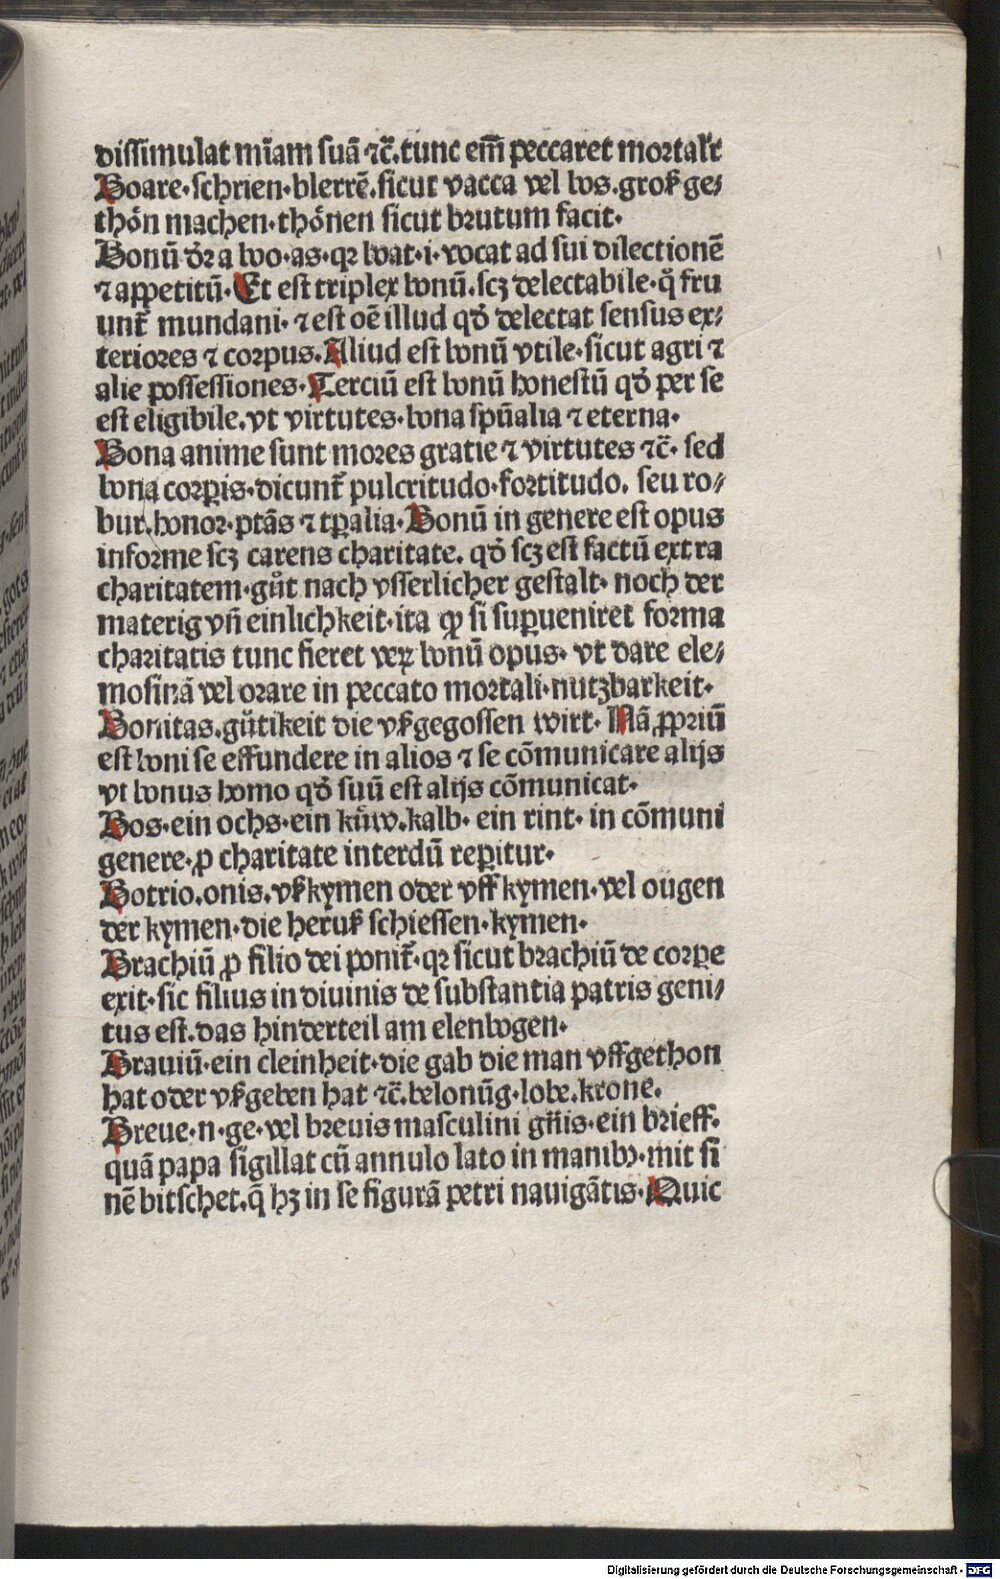 dissimulat mīam suā ⁊c̄. tunc em̄ peccaret mortalr̄
Boare·schrien·blerrē. sicut vacca vel bos. groß ge⸗
thôn machen·thônen sicut brutum facit·
Bonū dr̄ a boo·as·qꝛ boat·i·vocat ad sui dilectionē
⁊ appetitū·Et est triplex bonū. scꝫ delectabile·q̊ fru
unt̄ mundani·⁊ est oē illud qd̓ delectat sensus ex⸗
teriores ⁊ corpus. Aliud est bonū vtile·sicut agri ⁊
alie possessiones·Terciū est bonū honestū qd̓ per se
est eligibile. vt virtutes·bona spūalia ⁊ eterna·
Bona anime sunt mores gratie ⁊ virtutes ⁊c̄· sed
bona corꝑis·dicunt̄ pulcritudo·fortitudo. seu ro⸗
bur. honor·ptās ⁊ tꝑalia·Bonū in genere est opus
informe scꝫ carens charitate. qd̓ scꝫ est factū extra
charitatem·gůt nach vsserlicher gestalt· noch der
materig vn̄ einlichkeit·ita ꝙ si suꝑueniret forma
charitatis tunc fieret veꝝ bonū opus· vt dare ele⸗
mosinā vel orare in peccato mortali·nutzbarkeit·
Bonitas. gůtikeit die vßgegossen wirt· Nā ꝓpriū
est boni se effundere in alios ⁊ se cōmunicare alijs
vt bonus homo qd̓ suū est alijs cōmunicat·
Bos·ein ochs·ein kůw. kalb· ein rint· in cōmuni
genere·ꝓ charitate interdū reꝑitur·
Botrio. onis. vßkymen oder vff kymen·vel ougen
der kymen·die heruß schiessen·kymen·
Brachiū ꝓ filio dei ponit̄·qꝛ sicut brachiū de corꝑe
exit·sic filius in diuinis de substantia patris geni⸗
tus est. das hinderteil am elenbogen·
Brauiū·ein cleinheit·die gab die man vffgethon
hat oder vßgeben hat ⁊c̄. belonūg·lobe. krone.
Breue·n·ge·vel breuis masculini gn̄is·ein brieff·
quā papa sigillat cū annulo lato in manibꝰ·mit si
nē bitschet. q̄ hꝫ in se figurā petri nauigātis·Quic
Digitalisierung gefördert durch die Deutsche Forschungsgemeinschaft · DFG